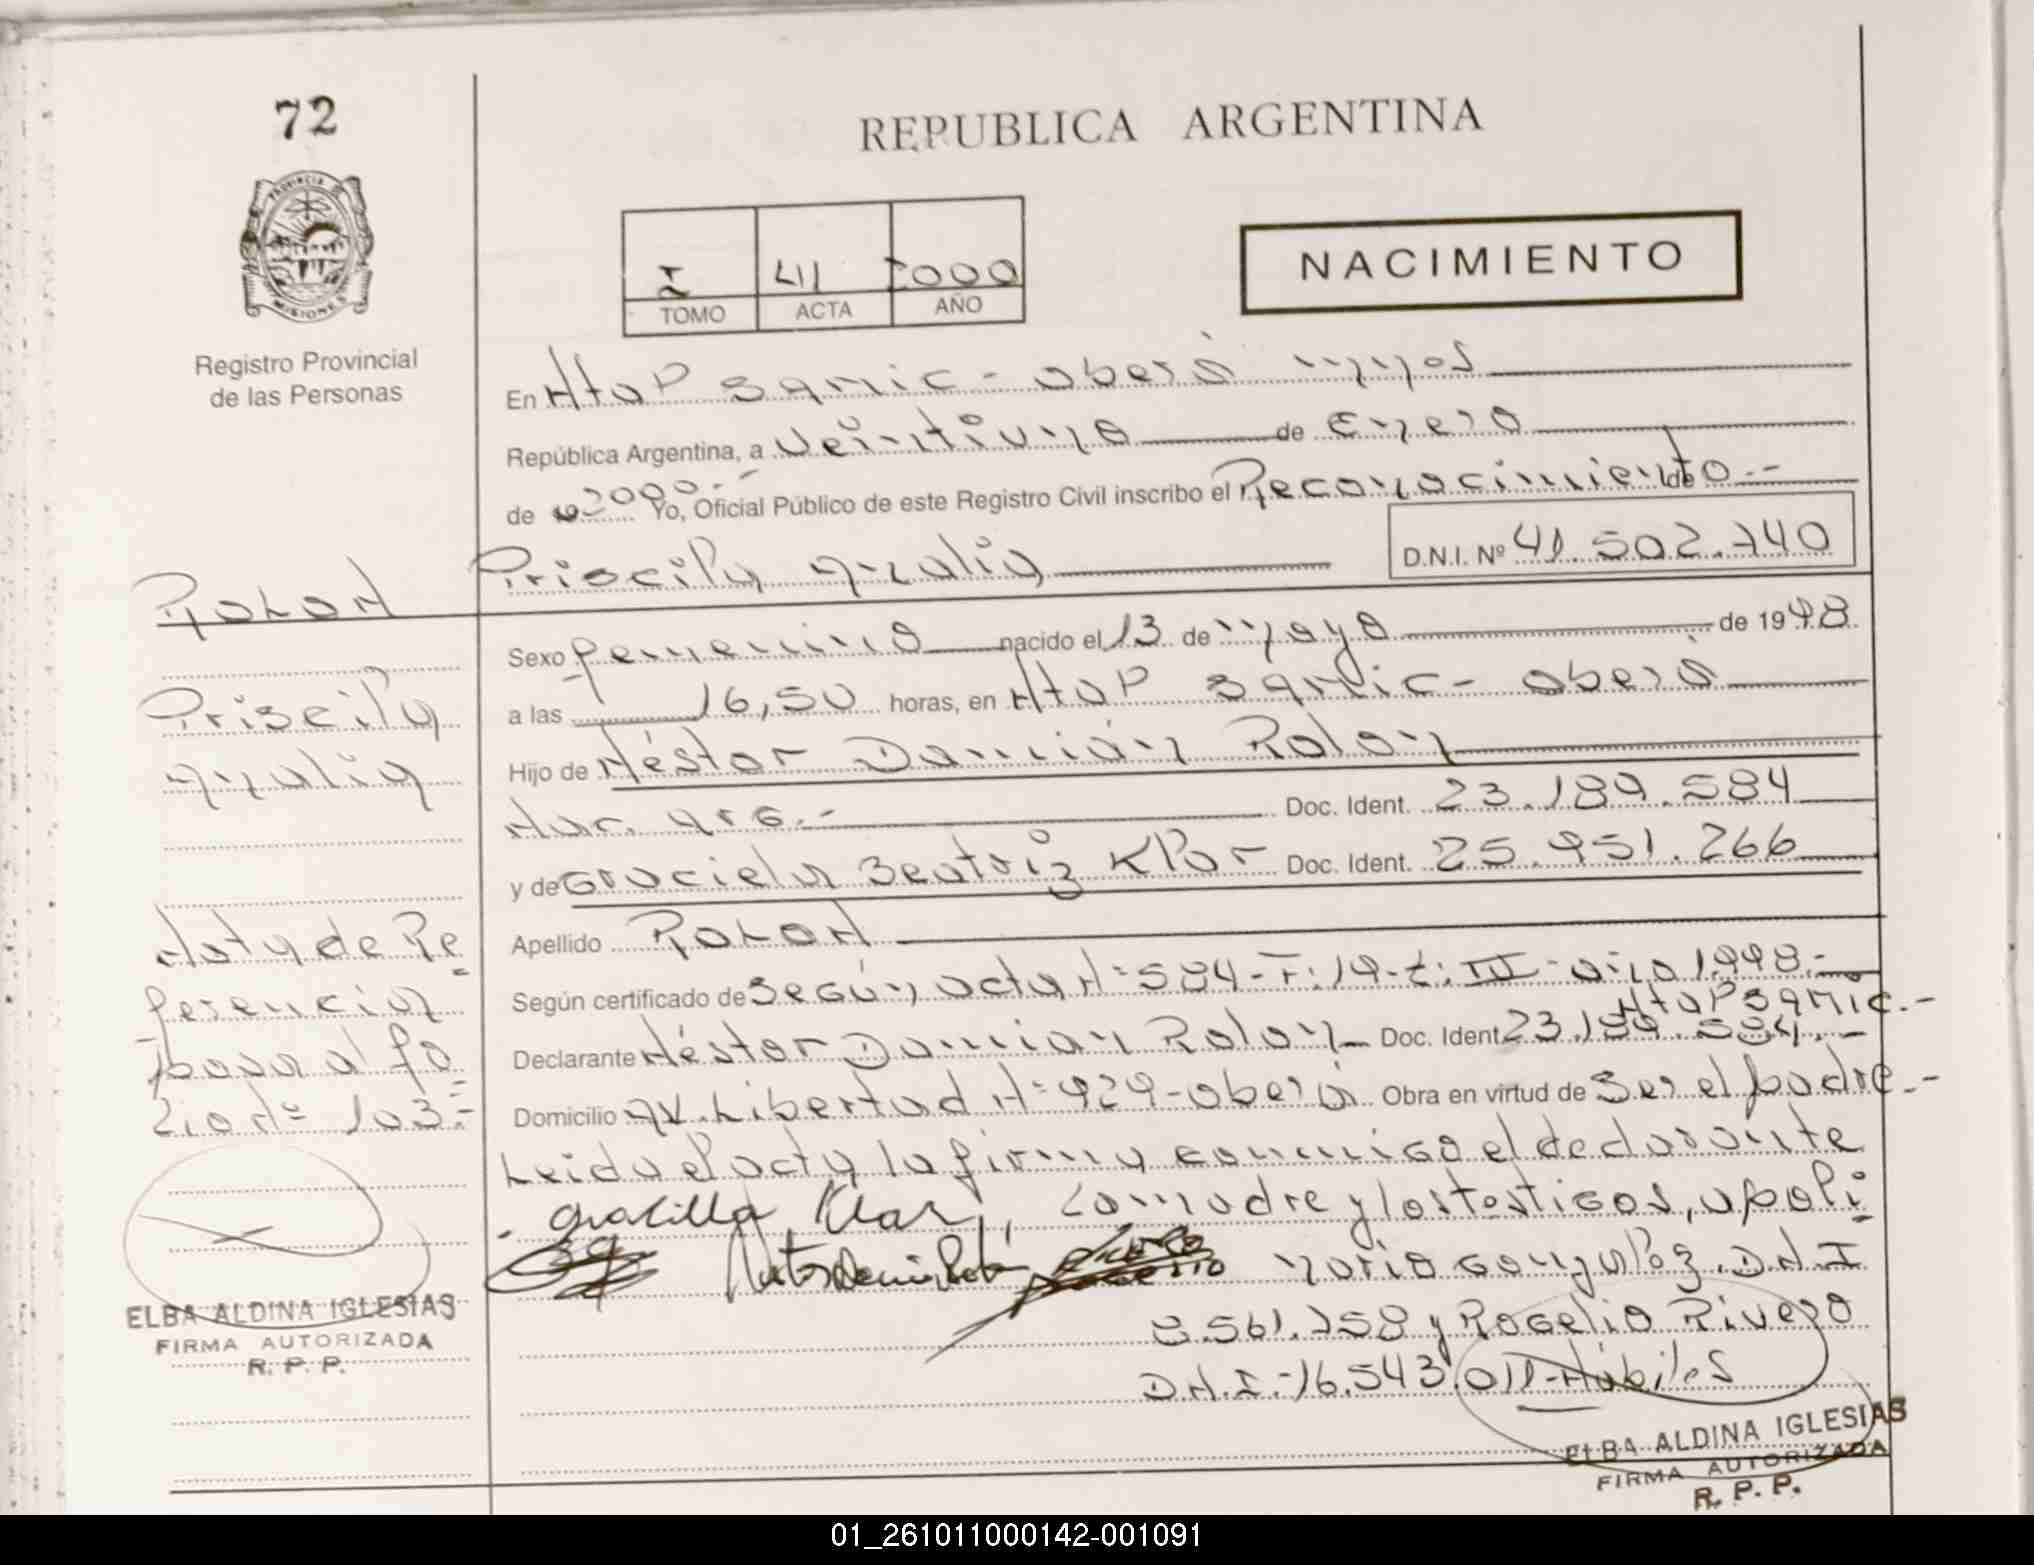 72
REPUBLICA ARGENTINA
PROVINCIA DE
MISIONES
Registro Provincial
de las Personas
I 41 2000
TOMO ACTA AÑO
NACIMIENTO
En Htal Samic - Oberá Mnes
República Argentina, a veintiuno de Enero
de 2000.- Yo, Oficial Público de este Registro Civil inscribo el Reconocimiento de.-
Priscila Analia D.N.I. Nº 41.502.740
ROLON
Priscila
Analia
Sexo femenino nacido el 13 de Mayo de 1998
a las 16,50 horas, en Htal Samic - Oberá
Hijo de Héstor Damián Rolon
Nac. Arg.- Doc. Ident. 23.189.584
y de Graciela Beatriz Klar Doc. Ident. 25.951.266
Apellido ROLON
Según certificado de Según acta Nº 584-F:19-t: III-año 1998.-
Htal Samic.-
Declarante Héstor Damian Rolon Doc. Ident. 23.189.584.-
Domicilio Av. Libertad Nº 929-Oberá Obra en virtud de Ser el padre.-
Leida el acta la firma conmigo el declarante
Graciela Klar, la madre y los testigos, apoli
nario Gonzalez. D.N.I
8.561.758 y Rogelio Rivero
D.N.I.-16.543.011-Hábiles
Nota de Re
ferencia
pasa al fo
lio Nº 103.-
ELBA ALDINA IGLESIAS
FIRMA AUTORIZADA
R. P. P.
ELBA ALDINA IGLESIAS
FIRMA AUTORIZADA
R. P. P.
01_261011000142-001091